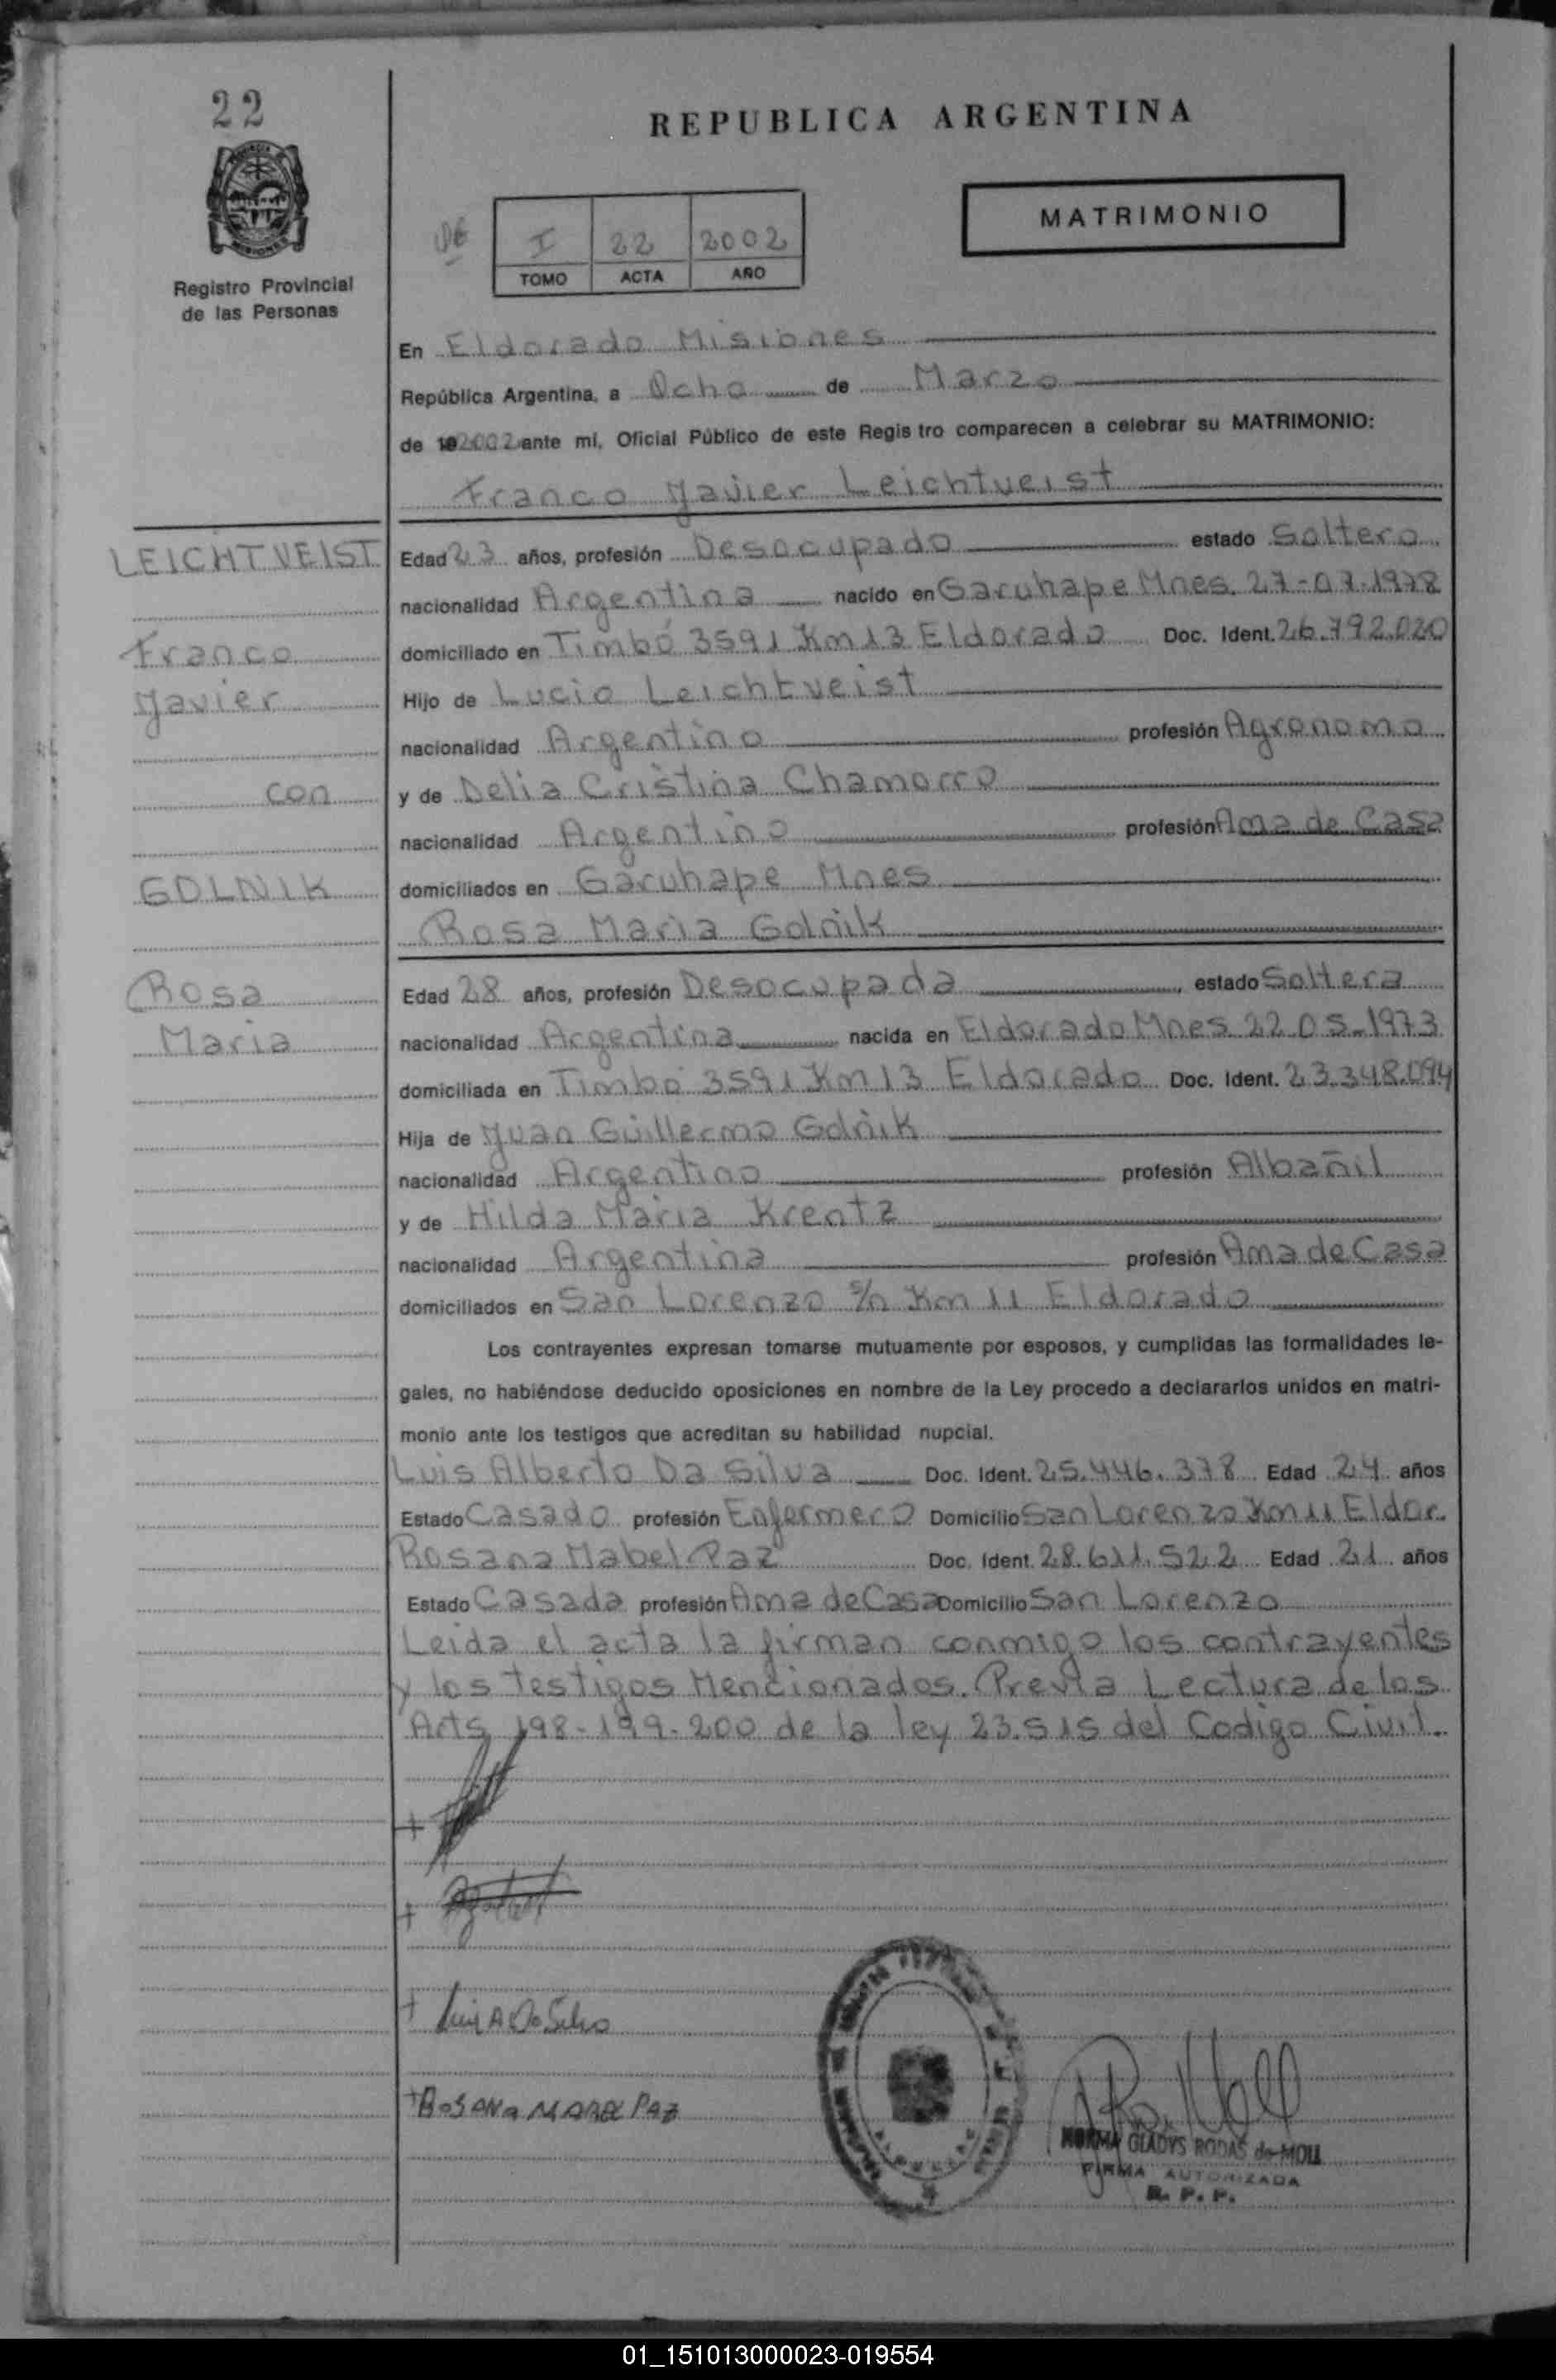 22
REPUBLICA ARGENTINA
MATRIMONIO
I 22 2002
TOMO ACTA AÑO
Registro Provincial
de las Personas
En Eldorado Misiones
República Argentina, a Ocho de Marzo
de 19 2002 ante mi, Oficial Público de este Regis tro comparecen a celebrar su MATRIMONIO:
Franco Javier Leichtveist
LEICHTVEIST
Franco
Javier
con
GOLNIK
Rosa
Maria
Edad 23 años, profesión Desocupado estado Soltero
nacionalidad Argentina nacido en Garuhape Mnes. 27-07-1978
domiciliado en Timbó 3591 Km 13 Eldorado Doc. Ident. 26.792.020
Hijo de Lucio Leichtveist
nacionalidad Argentino profesión Agronomo
y de Delia Cristina Chamorro
nacionalidad Argentino profesión Ama de Casa
domiciliados en Garuhape Mnes
Rosa Maria Golnik
Edad 28 años, profesión Desocupada, estado Soltera
nacionalidad Argentina nacida en Eldorado Mnes 22 05-1973
domiciliada en Timbó 3591 Km 13 Eldorado Doc. Ident. 23.348.094
Hija de Juan Guillermo Golnik
nacionalidad Argentino profesión Albañil
y de Hilda Maria Krentz
nacionalidad Argentina profesión Ama de Casa
domiciliados en San Lorenzo s/n Km 11 Eldorado
Los contrayentes expresan tomarse mutuamente por esposos, y cumplidas las formalidades le-
gales, no habiéndose deducido oposiciones en nombre de la Ley procedo a declararlos unidos en matri-
monio ante los testigos que acreditan su habilidad nupcial.
Luis Alberto Da Silva Doc. Ident. 25.446.378 Edad 24 años
Estado Casado profesión Enfermero Domicilio San Lorenzo Km 11 Eldor.
Rosana Mabel Paz Doc. Ident. 28.611.522 Edad 21 años
Estado Casada profesión Ama de Casa Domicilio San Lorenzo
Leida el acta la firman conmigo los contrayentes
y los testigos Mencionados. Previa Lectura de los
Arts 198-199-200 de la ley 23.515 del Codigo Civil.
Luis A Da Silva
ROSANA MABEL PAZ
NORMA GLADYS RODAS de MOLL
FIRMA AUTORIZADA
R. P. P.
01_151013000023-019554